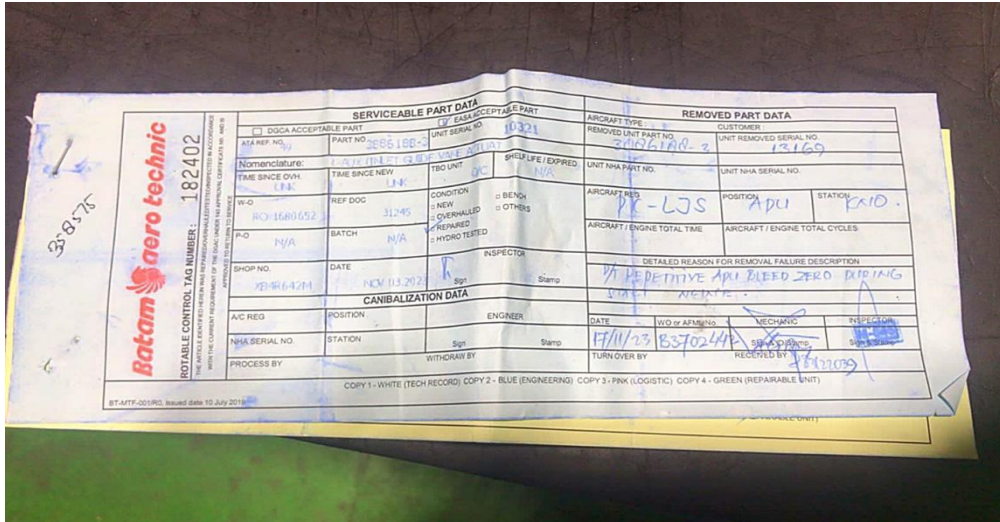 358575
Batam aero technic
ROTABLE CONTROL TAG NUMBER : 182402
THE ARTICLE IDENTIFIED HEREIN WAS REPAIRED/OVERHAULED/TESTED/INSPECTED IN ACCORDANCE
WITH THE CURRENT REQUIREMENT OF THE DGAC UNDER THE APPROVAL CERTIFICATE
APPROVED TO RETURN TO SERVICE
SERVICEABLE PART DATA
DGCA ACCEPTABLE PART
EASA ACCEPTABLE PART
ATA REF. NO.
PART NO. 3886188-2
UNIT SERIAL NO. 10321
Nomenclature: INLET GUIDE VANE ACTUAT
TIME SINCE OVH. UNK
TIME SINCE NEW UNK
TBO UNIT O/C
SHELF LIFE / EXPIRED N/A
W-O
REF DOC 31245
CONDITION
NEW
OVERHAULED
REPAIRED
HYDRO TESTED
BENCH
OTHERS
P-O N/A
BATCH N/A
INSPECTOR
SHOP NO. XB4R642M
DATE NOV 03.2023
Sign Stamp
CANIBALIZATION DATA
A/C REG
POSITION
ENGINEER
NHA SERIAL NO.
STATION
Sign Stamp
PROCESS BY
WITHDRAW BY
REMOVED PART DATA
AIRCRAFT TYPE
CUSTOMER
REMOVED UNIT PART NO.
UNIT REMOVED SERIAL NO. 13169
UNIT NHA PART NO.
UNIT NHA SERIAL NO.
AIRCRAFT REG PK-LJS
POSITION APU
STATION KNO.
AIRCRAFT / ENGINE TOTAL TIME
AIRCRAFT / ENGINE TOTAL CYCLES
DETAILED REASON FOR REMOVAL FAILURE DESCRIPTION
APU BLEED ZERO DURING
START
DATE 17/11/23
WO or AFML No.
MECHANIC
INSPECTOR
TURN OVER BY
RECEIVED BY
COPY 1 - WHITE (TECH RECORD) COPY 2 - BLUE (ENGINEERING) COPY 3 - PINK (LOGISTIC) COPY 4 - GREEN (REPAIRABLE UNIT)
BT-MTF-001/R0, Issued date 10 July